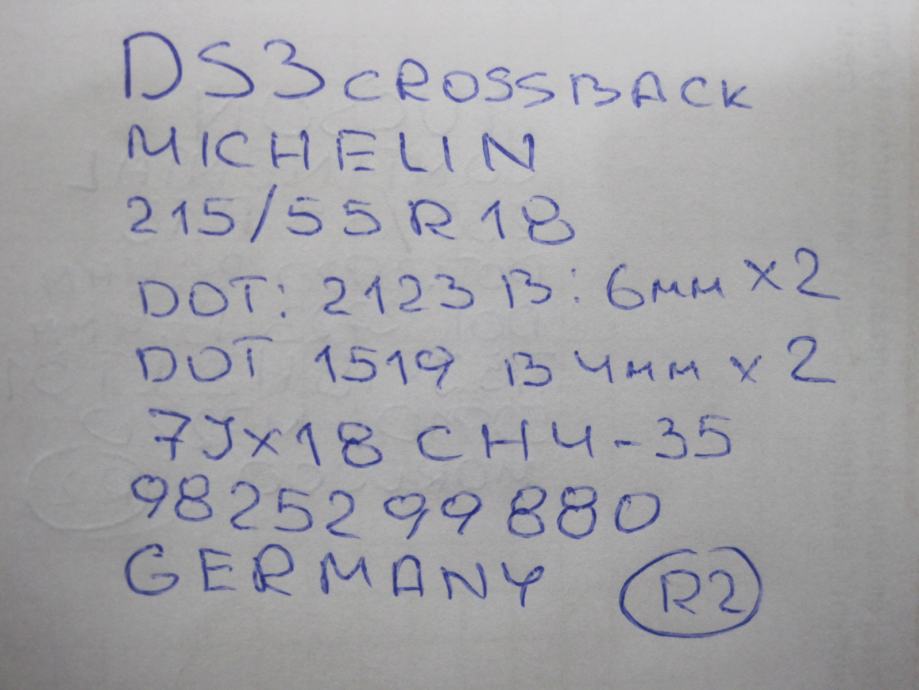 DS3 CROSSBACK
MICHELIN
215/55 R 18
DOT: 2123 B: 6мм x2
DOT 1519 B 4мм x 2
7Jx18 CH4-35
9825299880
GERMANY R2